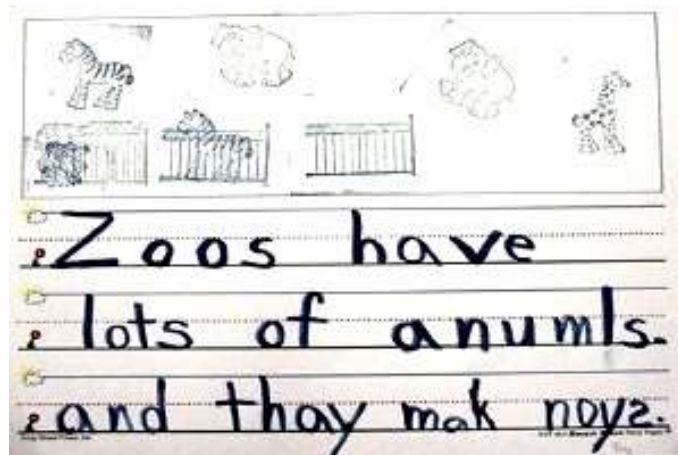 Zoos have
lots of anumls.
and thay mak noyz.